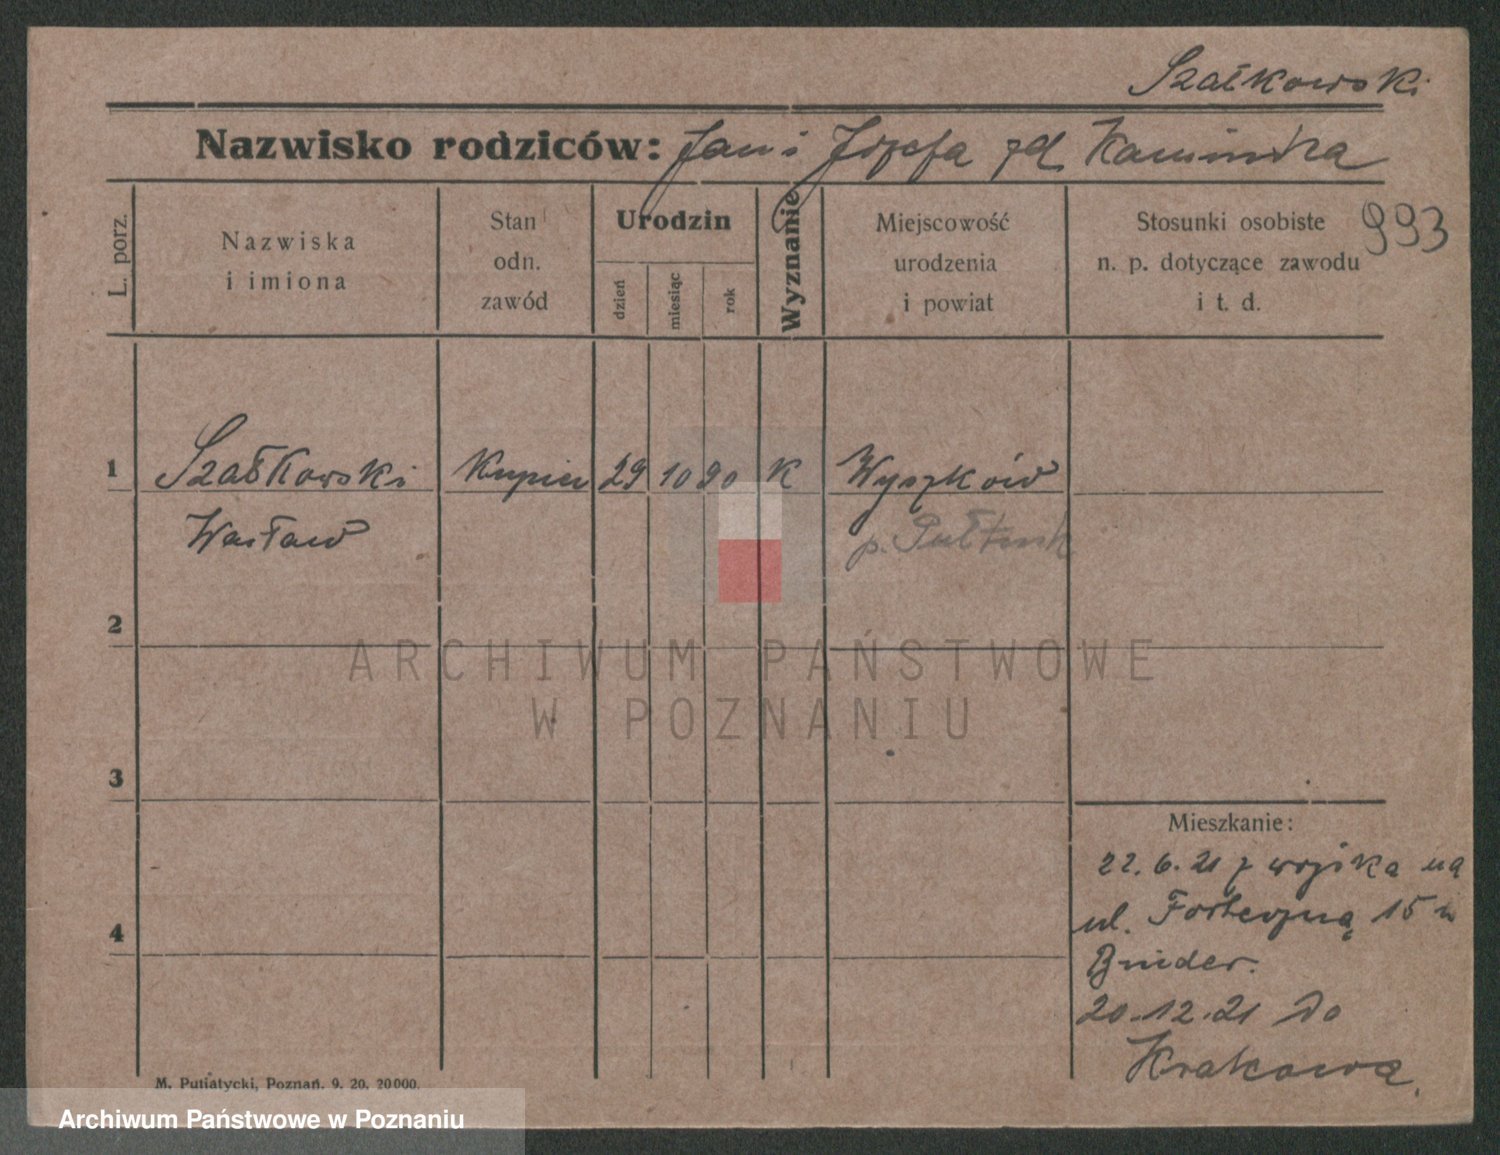 Szałkowski
Nazwisko rodziców: Jan i Józefa zd. Kamińska
993
L. porz.
Nazwiska
i imiona
Stan
odn.
zawód
Urodzin
dzień
miesiąc
rok
Wyznanie
Miejscowość
urodzenia
i powiat
Stosunki osobiste
n. p. dotyczące zawodu
i t. d.
1 Szałkowski Kupiec 29 10 90 K Wyszków
Wacław p. Pułtusk
2
ARCHIWUM PAŃSTWOWE
W POZNANIU
3
4
Mieszkanie:
22.6.21 z wojska na
ul. Forteczną 15
20.12.21 do
Krakowa.
M. Putiatycki, Poznań. 9. 20. 20000.
Archiwum Państwowe w Poznaniu